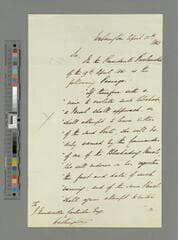 Washington April 30th
1861
Sir,
In the President's Proclamation
of the 19th April inst is the
following Passage.
"If therefore with a
"view to violate such blockade,
a Vessel shall approach or
shall attempt to leave either
of the said Ports, she will be
duly warned by the Commander
of one of the Blockading Vessels,
who will endorse on her register
the fact and date of such
warning; and if the same Vessel
shall again attempt to enter
To
Esqr
Washington